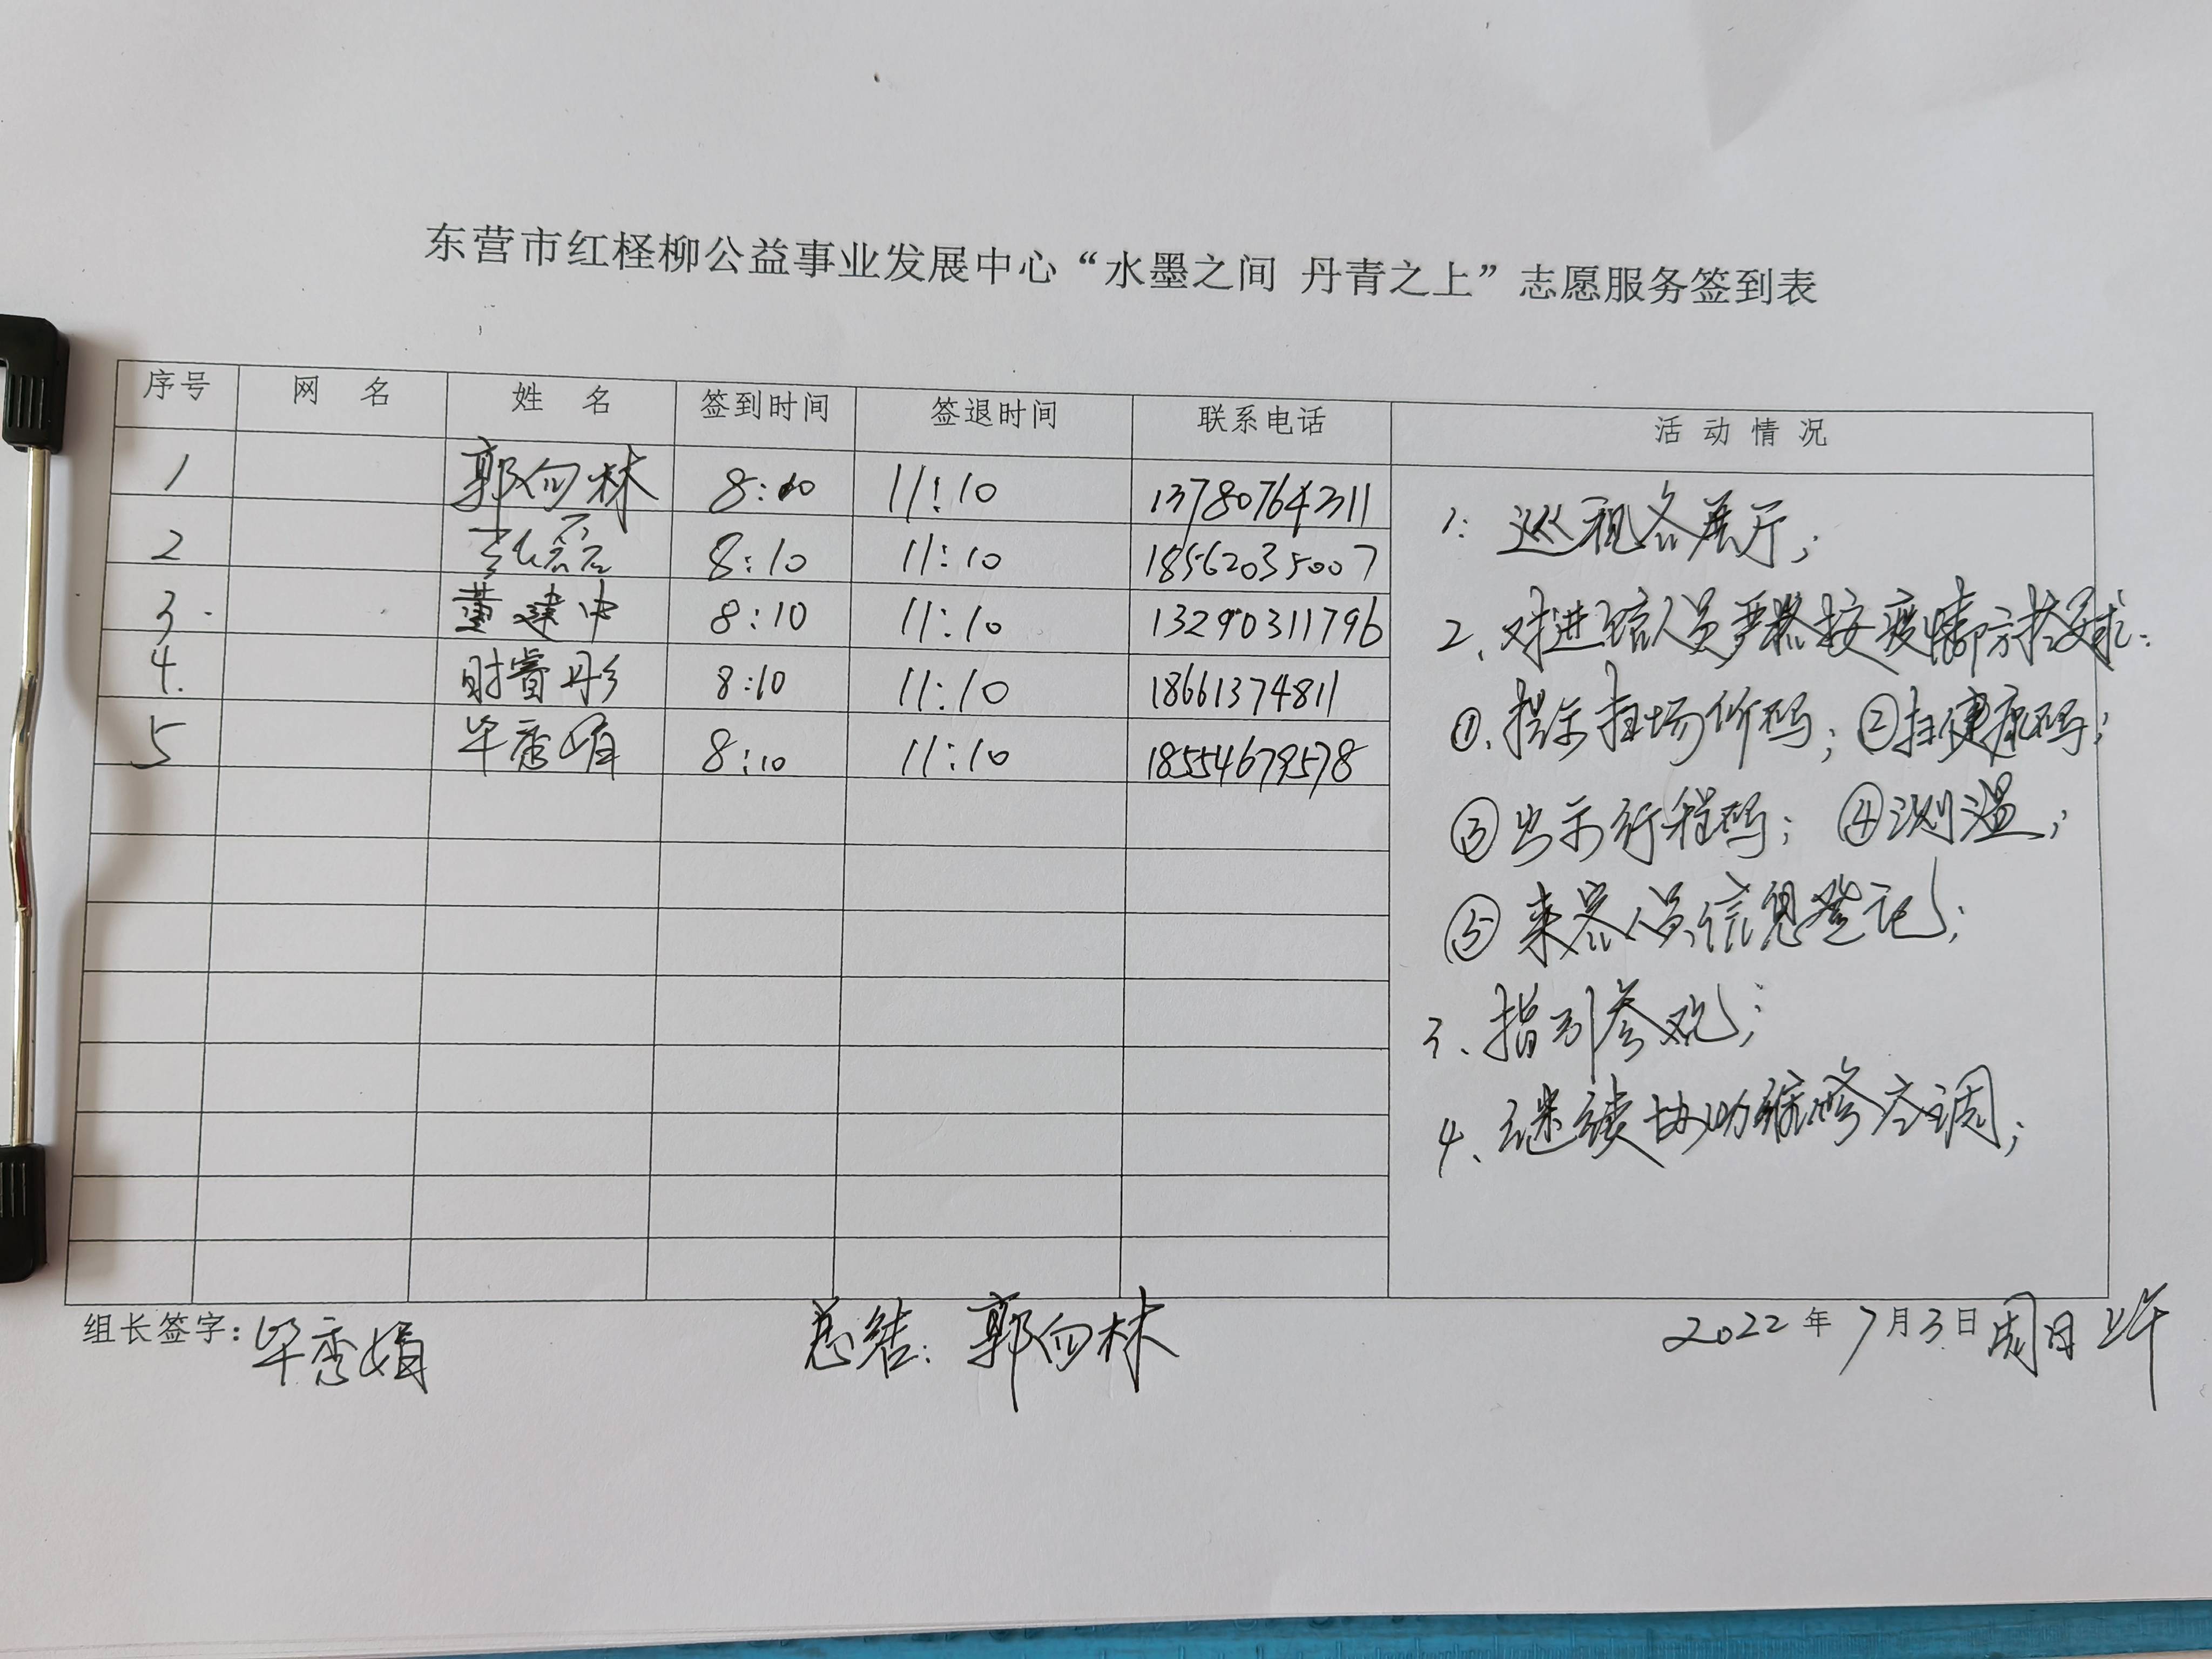 东营市红柽柳公益事业发展中心“水墨之间 丹青之上”志愿服务签到表
序号 网 名 姓 名 签到时间 签退时间 联系电话 活 动 情 况
1 郭向林 8:10 11:10 13780764311
2 张磊 8:10 11:10 18562035007
3 董建中 8:10 11:10 13290311796
4. 睿彤 8:10 11:10 18661374811
5 毕秀娟 8:10 11:10 18554679578
1: 巡视各展厅;
2、对进馆人员严格按疫情防控要求:
①、提示扫场所码; ②扫健康码;
③出示行程码; ④测温;
⑤来客人员信息登记;
3、指引参观;
4、继续协助维修空调;
组长签字: 毕秀娟 总结: 郭向林 2022年7月3日周日上午